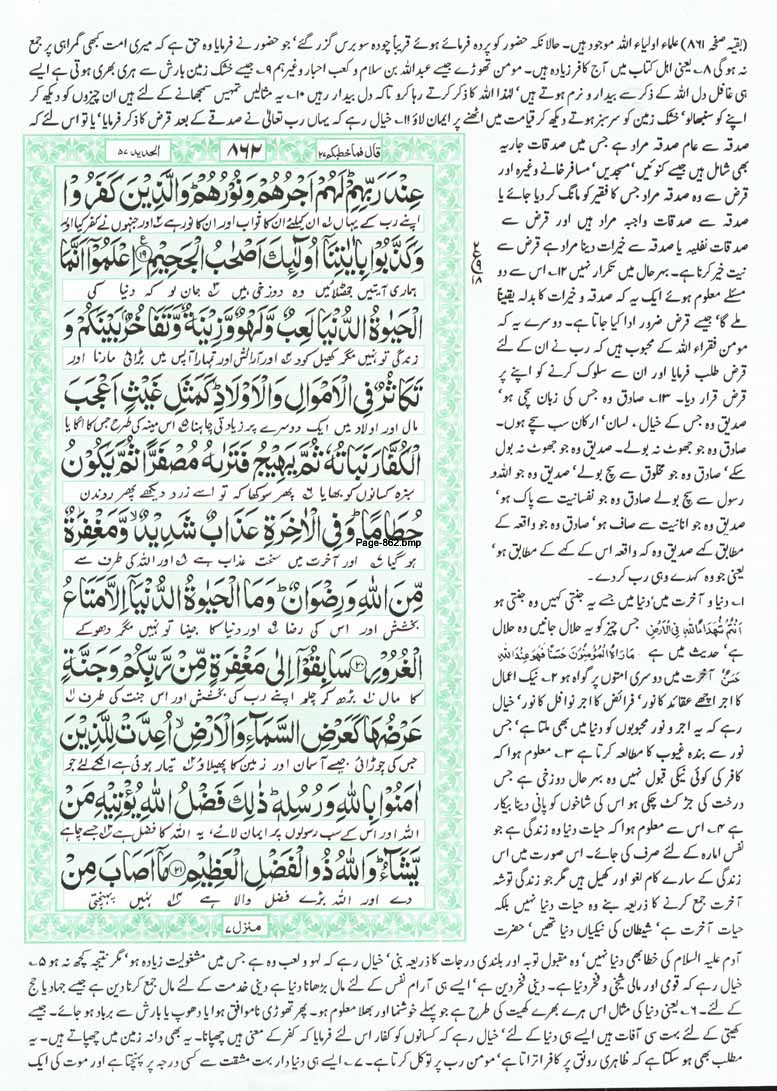 (بقیہ صفحہ ۸۶۱) علماء اولیاء اللہ موجود ہیں۔ حالانکہ حضور کو پردہ فرمائے ہوئے قریباً چودہ سو برس گزر گئے' جو حضور نے فرمایا وہ حق ہے کہ میری امت کبھی گمراہی پر جمع
نہ ہوگی ۸؎ یعنی اہل کتاب میں آج کافر زیادہ ہیں۔ مومن تھوڑے جیسے عبداللہ بن سلام و کعب احبار وغیرہم ۹؎ جیسے خشک زمین بارش سے ہری بھری ہوتی ہے ایسے
ہی غافل دل اللہ کے ذکر سے بیدار و نرم ہوتے ہیں' لہذا اللہ کا ذکر کرتے رہا کرو تاکہ دل بیدار رہیں ۱۰؎ یہ مثالیں تمہیں سمجھانے کے لئے ہیں ان چیزوں کو دیکھ کر
اپنے کو سنبھالو' خشک زمین کو سرسبز ہوتے دیکھ کر قیامت میں اٹھنے پر ایمان لاؤ ۱۱؎ خیال رہے کہ یہاں رب تعالیٰ نے صدقے کے بعد قرض کا ذکر فرمایا' یا تو اس لئے کہ
صدقہ سے عام صدقہ مراد ہے جس میں صدقات جاریہ
بھی شامل ہیں جیسے کنوئیں' مسجدیں' مسافر خانے وغیرہ اور
قرض سے وہ صدقہ مراد جس کا فقیر کو مانگ کر دیا جائے یا
صدقہ سے صدقات واجبہ مراد ہیں اور قرض سے
صدقات نفلیہ یا صدقہ سے خیرات دینا مراد ہے قرض سے
نیت خیر کرنا ہے۔ بہرحال میں تکرار نہیں ۱۲؎ اس سے دو
مسئلے معلوم ہوئے ایک یہ کہ صدقہ و خیرات کا بدلہ یقیناً
ملے گا' جیسے قرض ضرور ادا کیا جاتا ہے۔ دوسرے یہ کہ
مومن فقراء اللہ کے محبوب ہیں کہ رب نے ان کے لئے
قرض طلب فرمایا اور ان سے سلوک کرنے کو اپنے پر
قرض قرار دیا۔ ۱۳؎ صادق وہ جس کی زبان سچی ہو'
صدیق وہ جس کے خیال' لسان' ارکان سب سچے ہوں۔
صادق وہ جو جھوٹ نہ بولے۔ صدیق وہ جو جھوٹ نہ بول
سکے' صادق وہ جو مخلوق سے سچ بولے' صدیق وہ جو اللہ و
رسول سے سچ بولے صادق وہ جو نفسانیت سے پاک ہو'
صدیق وہ جو انانیت سے صاف ہو' صادق وہ جو واقعہ کے
مطابق کہے صدیق وہ کہ واقعہ اس کے کہے کے مطابق ہو'
یعنی جو وہ کہدے وہی رب کر دے۔
۱؎ دنیا و آخرت میں' دنیا میں جسے یہ جنتی کہیں وہ جنتی ہو
اَنْتُمْ شُهَدَآءُ اللهِ فِی الْاَرْضِ جس چیز کو یہ حلال جانیں وہ حلال
ہے' حدیث میں ہے مَارَاٰهُ الْمُؤْمِنُوْنَ حَسَنًا فَهُوَ عِنْدَ اللهِ
حَسَنٌ آخرت میں دوسری امتوں پر گواہ ہو ۲؎ نیک اعمال
کا اجر اچھے عقائد کا نور' فرائض کا اجر نوافل کا نور' خیال
رہے کہ یہ اجر و نور محبوبوں کو دنیا میں بھی ملتا ہے' جس
نور سے بندہ غیوب کا مطالعہ کرتا ہے ۳؎ معلوم ہوا کہ
کافر کی کوئی نیکی قبول نہیں وہ بہرحال دوزخی ہے جس
درخت کی جڑ کٹ چکی ہو اس کی شاخوں کو پانی دینا بیکار
ہے ۴؎ اس سے معلوم ہوا کہ حیات دنیا وہ زندگی ہے جو
نفس امارہ کے لئے صرف کی جائے۔ اس صورت میں اس
زندگی کے سارے کام لغو اور کھیل ہیں مگر جو زندگی توشہ
آخرت جمع کرنے کا ذریعہ بنے وہ حیات دنیا نہیں بلکہ
حیات آخرت ہے' شیطان کی نیکیاں دنیا تھیں' حضرت
قال فما خطبکم ۲۷
۸۶۲
الحدید ۵۷
عِنْدَ رَبِّهِمْ ؕ لَهُمْ اَجْرُهُمْ وَنُوْرُهُمْ ؕ وَالَّذِيْنَ كَفَرُوْا
اپنے رب کے یہاں ان کیلئے ان کا ثواب اور ان کا نور ہے اور جنہوں نے کفر کیا اور
وَكَذَّبُوْا بِاٰيٰتِنَاۤ اُولٰٓئِكَ اَصْحٰبُ الْجَحِيْمِ ﴿۱۹﴾ اِعْلَمُوْۤا اَنَّمَا
ہماری آیتیں جھٹلائیں وہ دوزخی ہیں جان لو کہ دنیا کی
الْحَيٰوةُ الدُّنْيَا لَعِبٌ وَّلَهْوٌ وَّزِيْنَةٌ وَّتَفَاخُرٌۢ بَيْنَكُمْ وَ
زندگی تو نہیں مگر کھیل کود اور آرائش اور تمہارا آپس میں بڑائی مارنا اور
تَكَاثُرٌ فِى الْاَمْوَالِ وَالْاَوْلَادِ ؕ كَمَثَلِ غَيْثٍ اَعْجَبَ
مال اور اولاد میں ایک دوسرے پر زیادتی چاہنا اس مینہ کی طرح جس کا اگایا
الْكُفَّارَ نَبَاتُهٗ ثُمَّ يَهِيْجُ فَتَرٰىهُ مُصْفَرًّا ثُمَّ يَكُوْنُ
سبزہ کسانوں کو بھایا پھر سوکھا کہ تو اسے زرد دیکھے پھر روندن
حُطَامًا ؕ وَفِى الْاٰخِرَةِ عَذَابٌ شَدِيْدٌ ۙ وَّمَغْفِرَةٌ
Page-862.bmp
ہو گیا اور آخرت میں سخت عذاب ہے اور اللہ کی طرف سے
مِّنَ اللّٰهِ وَرِضْوَانٌ ؕ وَمَا الْحَيٰوةُ الدُّنْيَاۤ اِلَّا مَتَاعُ
بخشش اور اس کی رضا اور دنیا کا جینا تو نہیں مگر دھوکے
الْغُرُوْرِ ﴿۲۰﴾ سَابِقُوْۤا اِلٰى مَغْفِرَةٍ مِّنْ رَّبِّكُمْ وَجَنَّةٍ
کا مال بڑھ کو چلو اپنے رب کی بخشش اور اس جنت کی طرف
عَرْضُهَا كَعَرْضِ السَّمَآءِ وَالْاَرْضِ ۙ اُعِدَّتْ لِلَّذِيْنَ
جس کی چوڑائی جیسے آسمان اور زمین کا پھیلاؤ تیار ہوئی ہے انکے لئے جو
اٰمَنُوْا بِاللّٰهِ وَرُسُلِهٖ ؕ ذٰلِكَ فَضْلُ اللّٰهِ يُؤْتِيْهِ مَنْ
اللہ اور اس کے سب رسولوں پر ایمان لائے، یہ اللہ کا فضل ہے جسے چاہے
يَّشَآءُ ؕ وَاللّٰهُ ذُو الْفَضْلِ الْعَظِيْمِ ﴿۲۱﴾ مَاۤ اَصَابَ مِنْ
دے اور اللہ بڑے فضل والا ہے نہیں پہنچتی
منزل ۷
آدم علیہ السلام کی خطا بھی دنیا نہیں' وہ مقبول توبہ اور بلندی درجات کا ذریعہ بنی' خیال رہے کہ لہو و لعب وہ ہے جس میں مشغولیت زیادہ ہو' مگر نتیجہ کچھ نہ ہو ۵؎
خیال رہے کہ قومی اور مالی شیخی و فخر دنیا ہے۔ دینی فخر دین ہے' ایسے ہی آرام نفس کے لئے مال بڑھانا دنیا ہے دینی خدمت کے لئے مال جمع کرنا دین ہے جیسے جہاد یا حج
کے لئے۔ ۶؎ یعنی دنیا کی مثال اس ہرے بھرے کھیت کی طرح ہے جو پہلے خوشنما اور بھلا معلوم ہو۔ پھر تھوڑی ناموافق ہوا یا دھوپ یا بارش سے برباد ہو جائے۔ جیسے
کھیتی کے لئے بہت سی آفات ہیں ایسے ہی دنیا کے لئے' خیال رہے کہ کسانوں کو کفار اس لئے فرمایا کہ کفر کے معنی ہیں چھپانا۔ یہ بھی دانہ زمین میں چھپاتے ہیں۔ یہ
مطلب بھی ہو سکتا ہے کہ ظاہری رونق پر کافر اتراتا ہے' مومن رب پر توکل کرتا ہے۔ ۷؎ ایسے ہی دنیا دار بہت مشقت سے کسی درجہ پر پہنچتا ہے اور موت کی ایک